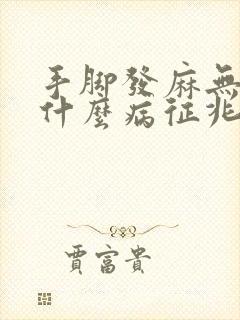 手脚發麻無
什麼病征兆
賈富貴